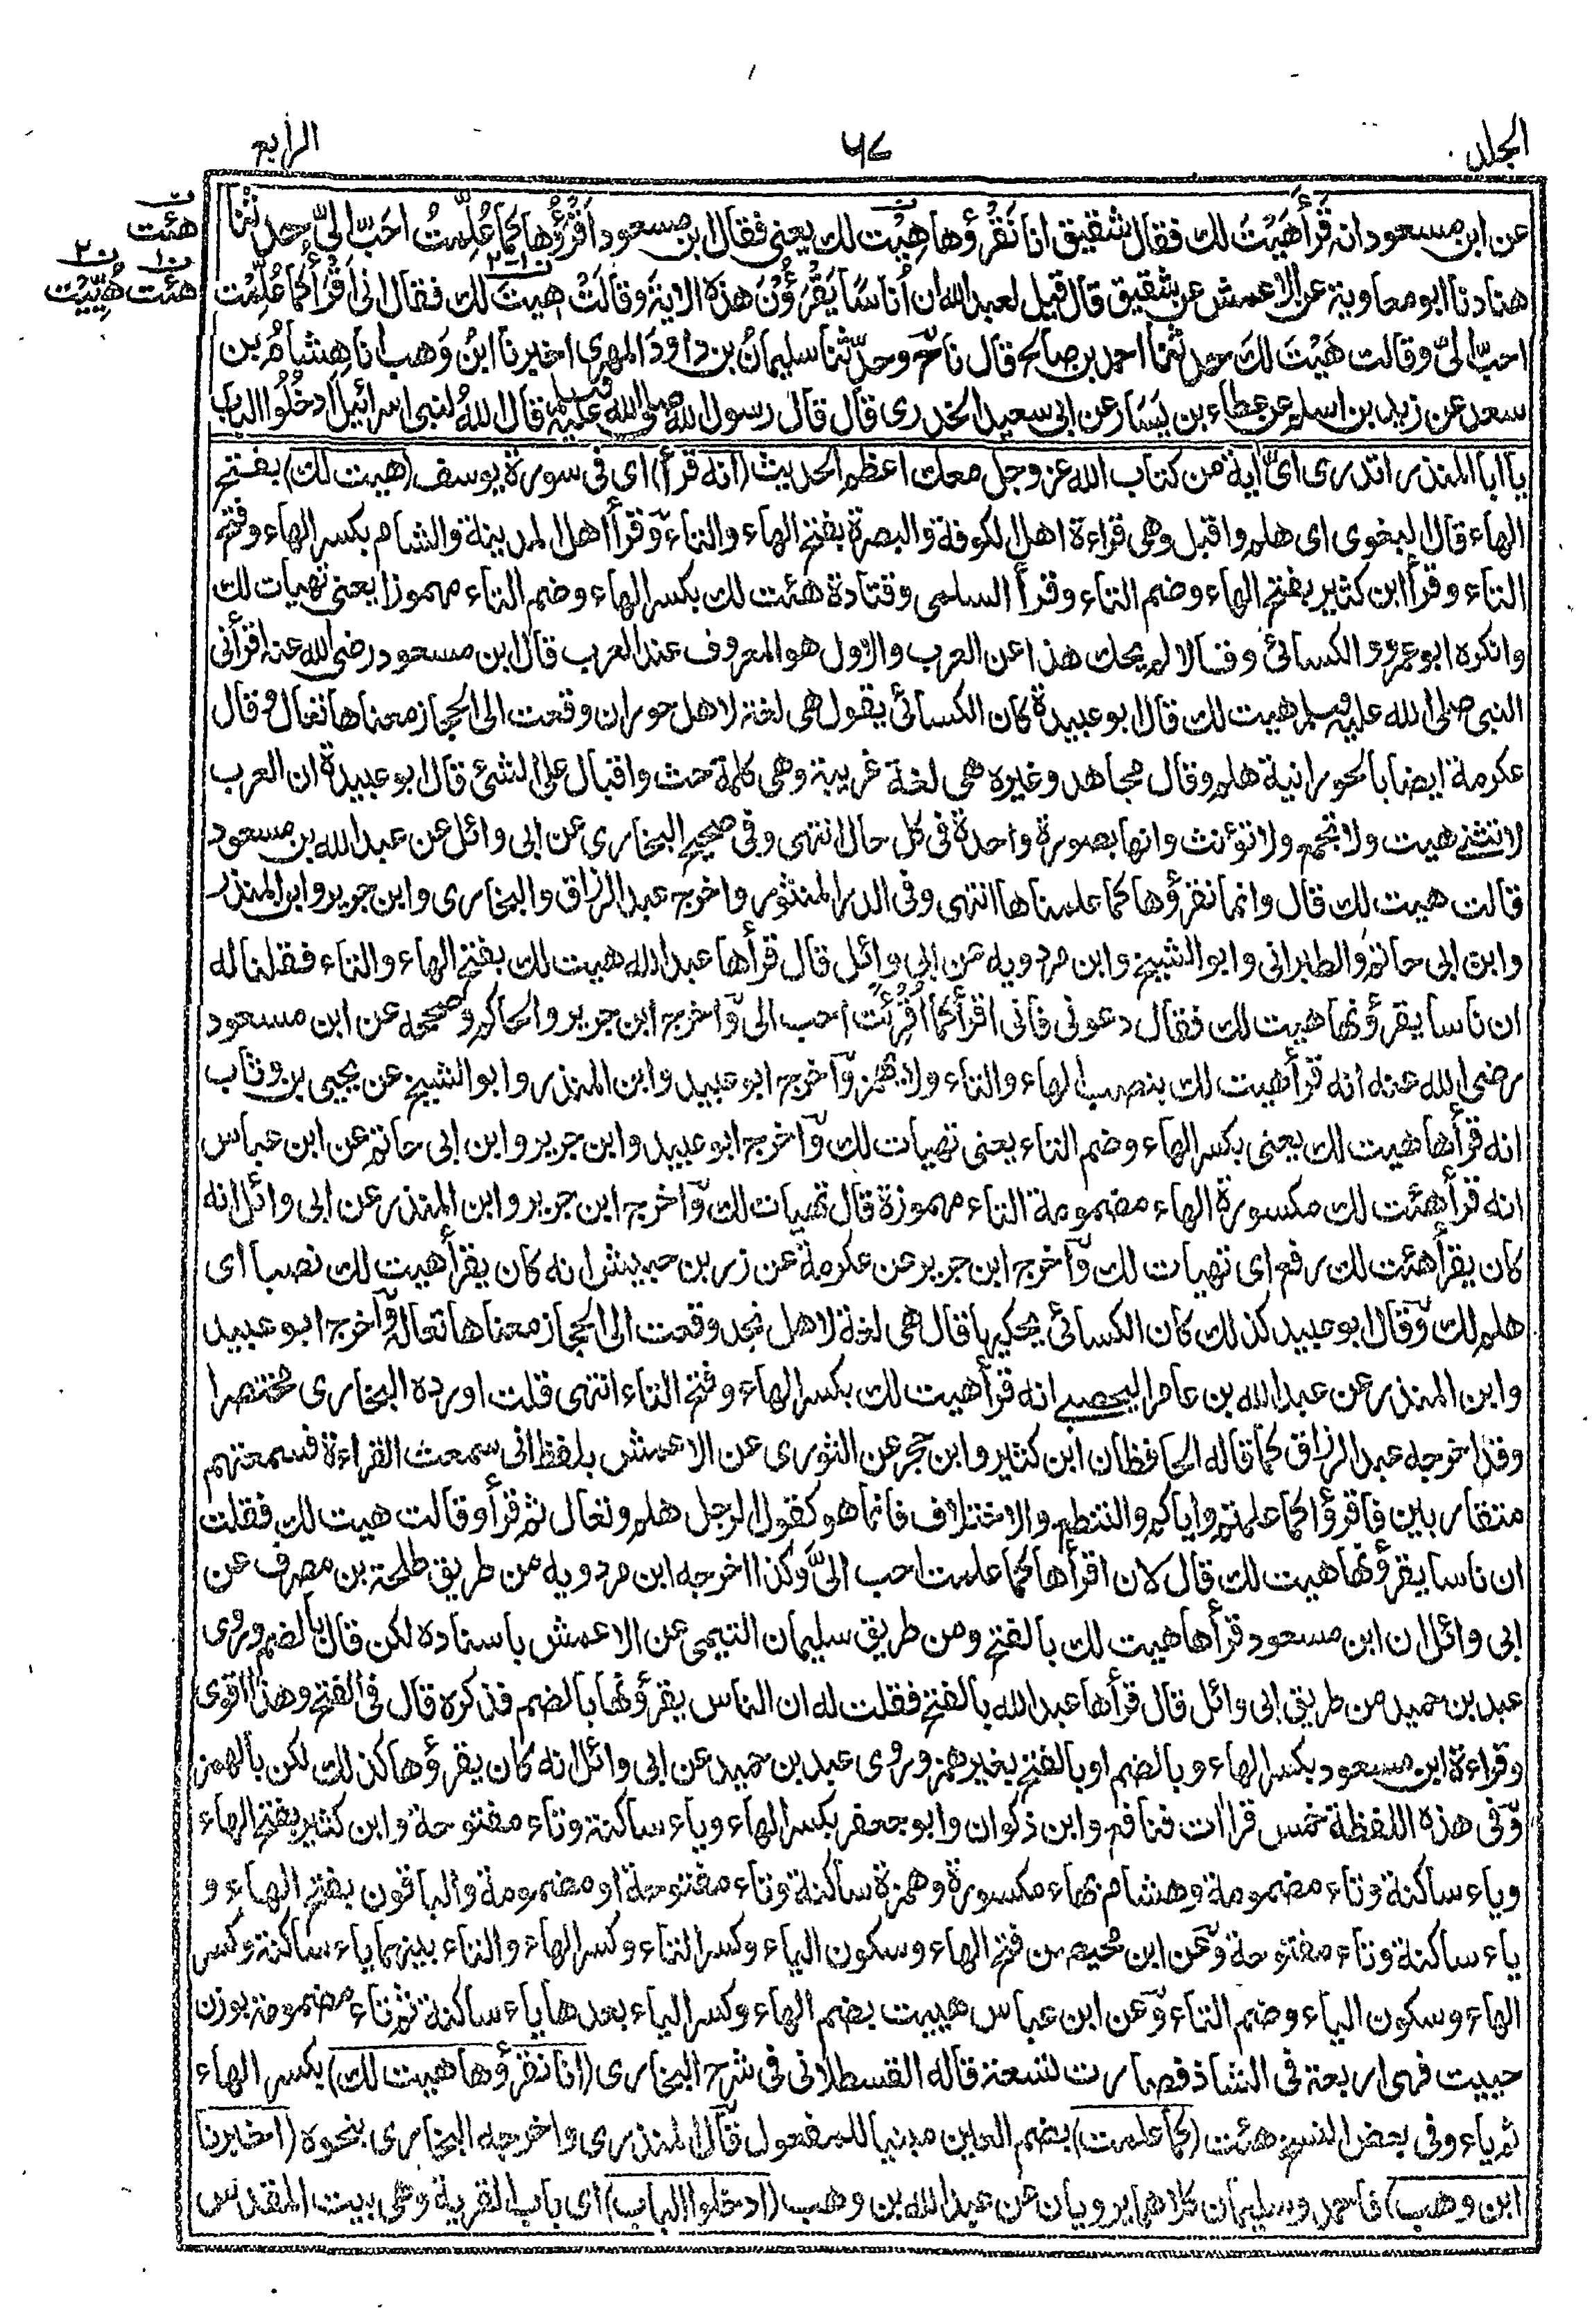 الجلد
٦٧
الرابع
عن ابن مسعود انه قَرَأَ هَيْتَ لك فقال شقيق انا نَقْرَؤُها هِيْتُ لك يعنى فقال ابن مسعود اَقْرَؤُها كما عُلِّمْتُ احَبُّ الىَّ حدثنا
هناد نا ابو معاوية عن الاعمش عن شقيق قال قيل لعبد الله ان اُناسًا يَقْرَؤُنَ هذه الاية وقالَتْ هِيتَ لك فقال انى اَقْرَأُ كما عُلِّمْتُ
احبّ الىّ وقالت هَيْتَ لَكَ حدثنا احمد بن صالح قال نا ح وحدّثنا سليمانُ بن داودَ المهرى اخبرنا ابنُ وَهب انا هِشامُ بن
سعد عن زيد بن اسلم عن عطاء بن يَسَار عن ابى سعيد الخدرى قال قال رسول الله صلى الله عليه وسلم قال اللهُ لبنى اسرائيل ادخُلُوا الباب
ن
هئت
ن١ ن٢
هئت هُيِّيْتُ
يا ابا المنذر اتدرى اىّ اية من كتاب الله عز وجل معك اعظم الحديث (انه قرأ) اى فى سورة يوسف (هيت لك) بفتح
الهاء قال البغوى اى هلم واقبل وهى قراءة اهل الكوفة والبصرة بفتح الهاء والتاء وقرأ اهل المدينة والشام بكسر الهاء وفتح
التاء وقرأ ابن كثير بفتح الهاء وضم التاء وقرأ السلمى وقتادة هئت لك بكسر الهاء وضم التاء مهموزا يعنى تهيات لك
وانكره ابو عمرو والكسائى وقالا لم يحك هذا عن العرب والاول هو المعروف عند العرب قال ابن مسعود رضى الله عنه اقرأنى
النبى صلى الله عليه وسلم هيت لك قال ابو عبيدة كان الكسائى يقول هى لغة لاهل حوران وقعت الى الحجاز معناها تعال وقال
عكرمة ايضا بالحورانية هلم وقال مجاهد وغيره هى لغة غريبة وهى كلمة حث واقبال على الشئ قال ابو عبيدة ان العرب
لا تثنى هيت ولا تجمع ولا تؤنث وانها بصورة واحدة فى كل حال انتهى وفى صحيح البخارى عن ابى وائل عن عبد الله بن مسعود
قالت هيت لك قال وانما نقرؤها كما علمناها انتهى وفى الدر المنثور واخرج عبد الرزاق والبخارى وابن جرير وابن المنذر
وابن ابى حاتم والطبرانى وابو الشيخ وابن مردويه عن ابى وائل قال قرأها عبد الله هيت لك بفتح الهاء والتاء فقلنا له
ان ناسا يقرؤنها هيت لك فقال دعونى فانى اقرأ كما اُقْرِئْتُ احب الىّ واخرج ابن جرير والحاكم وصححه عن ابن مسعود
رضى الله عنه انه قرأ هيت لك بنصب الهاء والتاء ولا يهمز واخرج ابو عبيد وابن المنذر وابو الشيخ عن يحيى بن وثاب
انه قرأها هيت لك يعنى بكسر الهاء وضم التاء يعنى تهيات لك واخرج ابو عبيد وابن جرير وابن ابى حاتم عن ابن عباس
انه قرأ هئت لك مكسورة الهاء مضمومة التاء مهموزة قال تهيات لك واخرج ابن جرير وابن المنذر عن ابى وائل انه
كان يقرأ هئت لك رفع اى تهيات لك واخرج ابن جرير عن عكرمة عن زر بن حبيش انه كان يقرأ هيت لك نصبا اى
هلم لك وقال ابو عبيد كذلك كان الكسائى يحكيها قال هى لغة لاهل نجد وقعت الى الحجاز معناها تعاله واخرج ابو عبيد
وابن المنذر عن عبد الله بن عامر اليحصبى انه قرأ هيت لك بكسر الهاء وفتح التاء انتهى قلت اورده البخارى مختصرا
وقد اخرجه عبد الرزاق كما قاله الحافظان ابن كثير وابن حجر عن الثورى عن الاعمش بلفظ انى سمعت القراءة فسمعتهم
متقاربين فاقرؤا كما علمتم واياكم والتنطع والاختلاف فانما هو كقول الرجل هلم وتعال ثم قرأ وقالت هيت لك فقلت
ان ناسا يقرؤنها هيت لك قال لان اقرأها كما علمت احب الىّ وكذا اخرجه ابن مردويه من طريق طلحة بن مصرف عن
ابى وائل ان ابن مسعود قرأها هيت لك بالفتح ومن طريق سليمان التيمى عن الاعمش باسناده لكن قال بالضم وروى
عبد بن حميد من طريق ابى وائل قال قرأها عبد الله بالفتح فقلت له ان الناس يقرؤنها بالضم فذكره قال فى الفتح وهذا اقوى
وقراءة ابن مسعود بكسر الهاء وبالضم او بالفتح بغير همز وروى عبد بن حميد عن ابى وائل انه كان يقرؤها كذلك لكن بالهمز
وفى هذه اللفظة خمس قراات فنافع وابن ذكوان وابو جعفر بكسر الهاء وياء ساكنة وتاء مفتوحة وابن كثير بفتح الهاء
وياء ساكنة وتاء مضمومة وهشام بهاء مكسورة وهمزة ساكنة وتاء مفتوحة او مضمومة والباقون بفتح الهاء و
ياء ساكنة وتاء مفتوحة وعن ابن محيصن فتح الهاء وسكون الياء وكسر التاء وكسر الهاء والتاء بينهما ياء ساكنة وكسر
الهاء وسكون الياء وضم التاء وعن ابن عباس هييت بضم الهاء وكسر الياء بعدها ياء ساكنة ثم تاء مضمومة بوزن
حييت فهى اربعة فى الشاذ فصارت تسعة قاله القسطلانى فى شرح البخارى (انا نقرؤها هيت لك) بكسر الهاء
ثم ياء وفى بعض النسخ هئت (كما علمت) بضم العين مبنيا للمفعول قال المنذرى واخرجه البخارى بنحوه (اخبرنا
ابن وهب) فاحمد وسليمان كلاهما يرويان عن عبد الله بن وهب (ادخلوا الباب) اى باب القرية وهى بيت المقدس